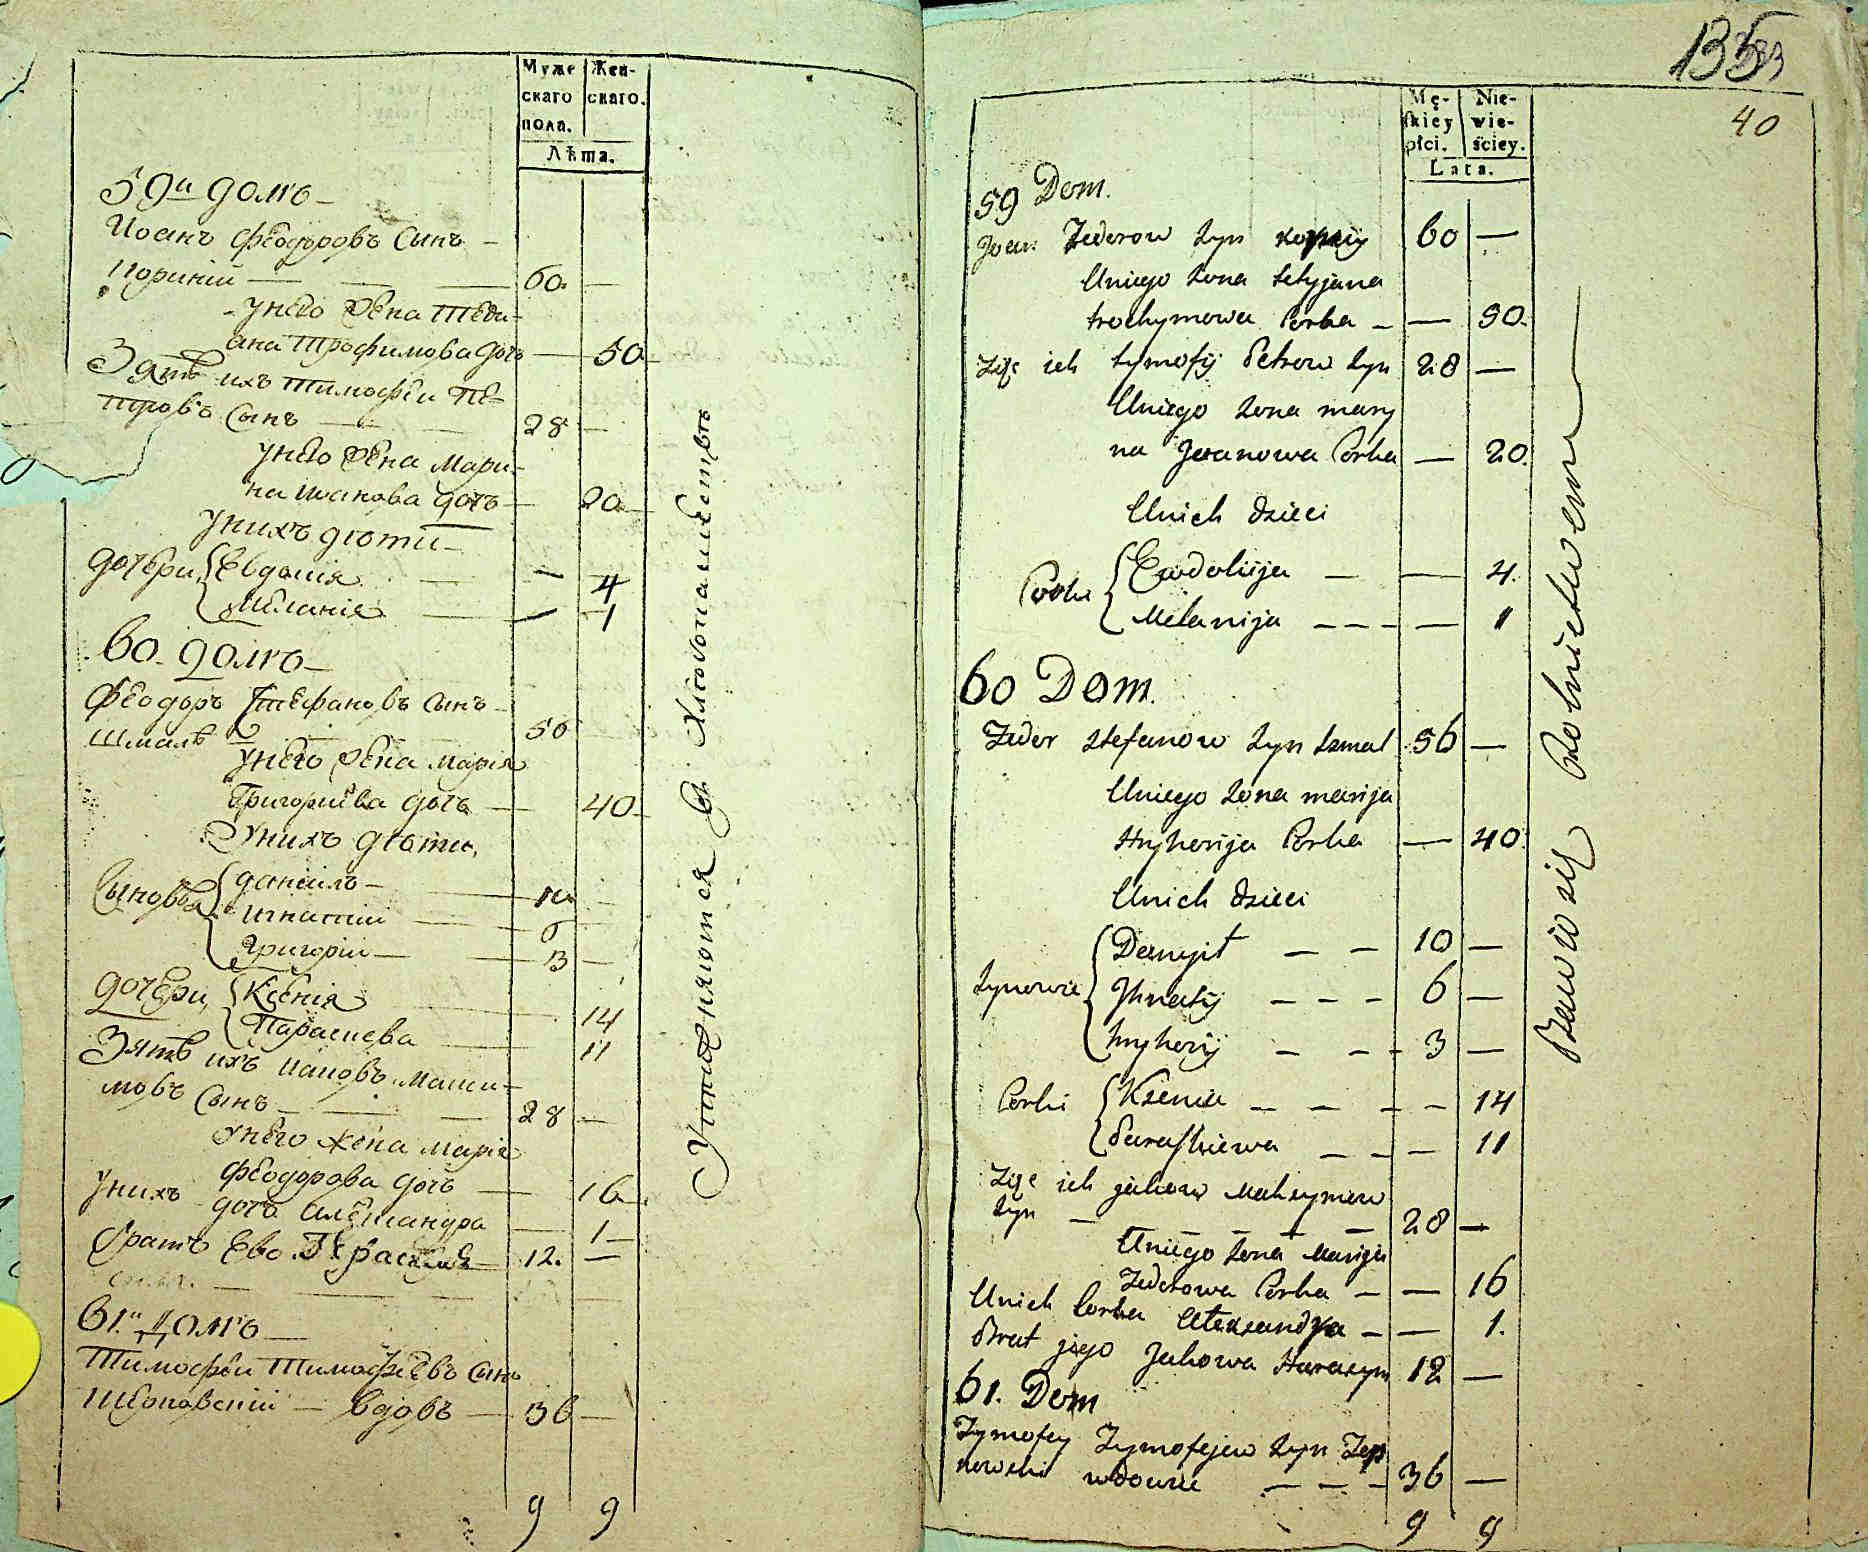 Муже
скаго
пола.
Жен-
скаго.
Лѣта.
59й домъ
Иоанъ Феодоровъ Сынъ
60.
у него Жена Тети-
ана Трофимова дочь — 50
Зять ихъ Тимофей Пе-
тровъ Сынъ — 28 —
у него Жена Мари-
на Иванова дочь — 20
у нихъ дѣти
дочери, Евдокія — — 4
Меланія — — 1
60. домъ
Феодоръ Стефановъ Сынъ
Шмаль 56
у него Жена Марія
Григориева дочь — 40
у нихъ дѣти,
Сыновья Данеилъ — 10
Игнатий — 6
Григорій — 3 —
дочери, Ксенія 14
Параскева 11
Зять ихъ Иаковъ Макси-
мовъ Сынъ — 28 —
у него жена Марія
Феодорова дочь — 16
у нихъ дочь Александра — 1
братъ Его Герасимъ 12. —
61.й Домъ
Тимофей Тимофѣевъ Сынъ
вдовъ — 36 —
9 9
Упражняются в Хлѣбопашествѣ
135
40
Mę-
skiey
płci.
Nie-
wie-
ściey.
Lata.
59 Dom.
Joan Fedorow Syn 60 —
Uniego Zona tetyjana
trochymowa Corka — — 50.
Zięc ich tymofij Petrow Syn 28 —
Uniego Zona mary
na Jwanowa Corka — 20.
Unich dzieci
Corki Ewdokija — — 4.
Melanija — — — — 1
60 Dom.
Fedor Stefanow Syn Szmal 56 —
Uniego Zona marija
Hryhorija Corka — 40.
Unich dzieci
Synowie Danyił — — 10 —
Jhnatij — — — 6 —
hryhorij — — — 3 —
Corki Ksenia — — — — 14
Paraskiewa — — — 11
Zięc ich jakow Maksymow
Syn — — — — 28 —
Uniego Zona Marija
Fedorowa Corka — — 16
Unich Corka Alexandra — — 1.
Brat jego Jakowa Harasym 12 —
61. Dom
Tymofey Tymofejew Syn Szep
nowski wdowiec — — — 36 —
9 9
Bawią się Rolnictwem